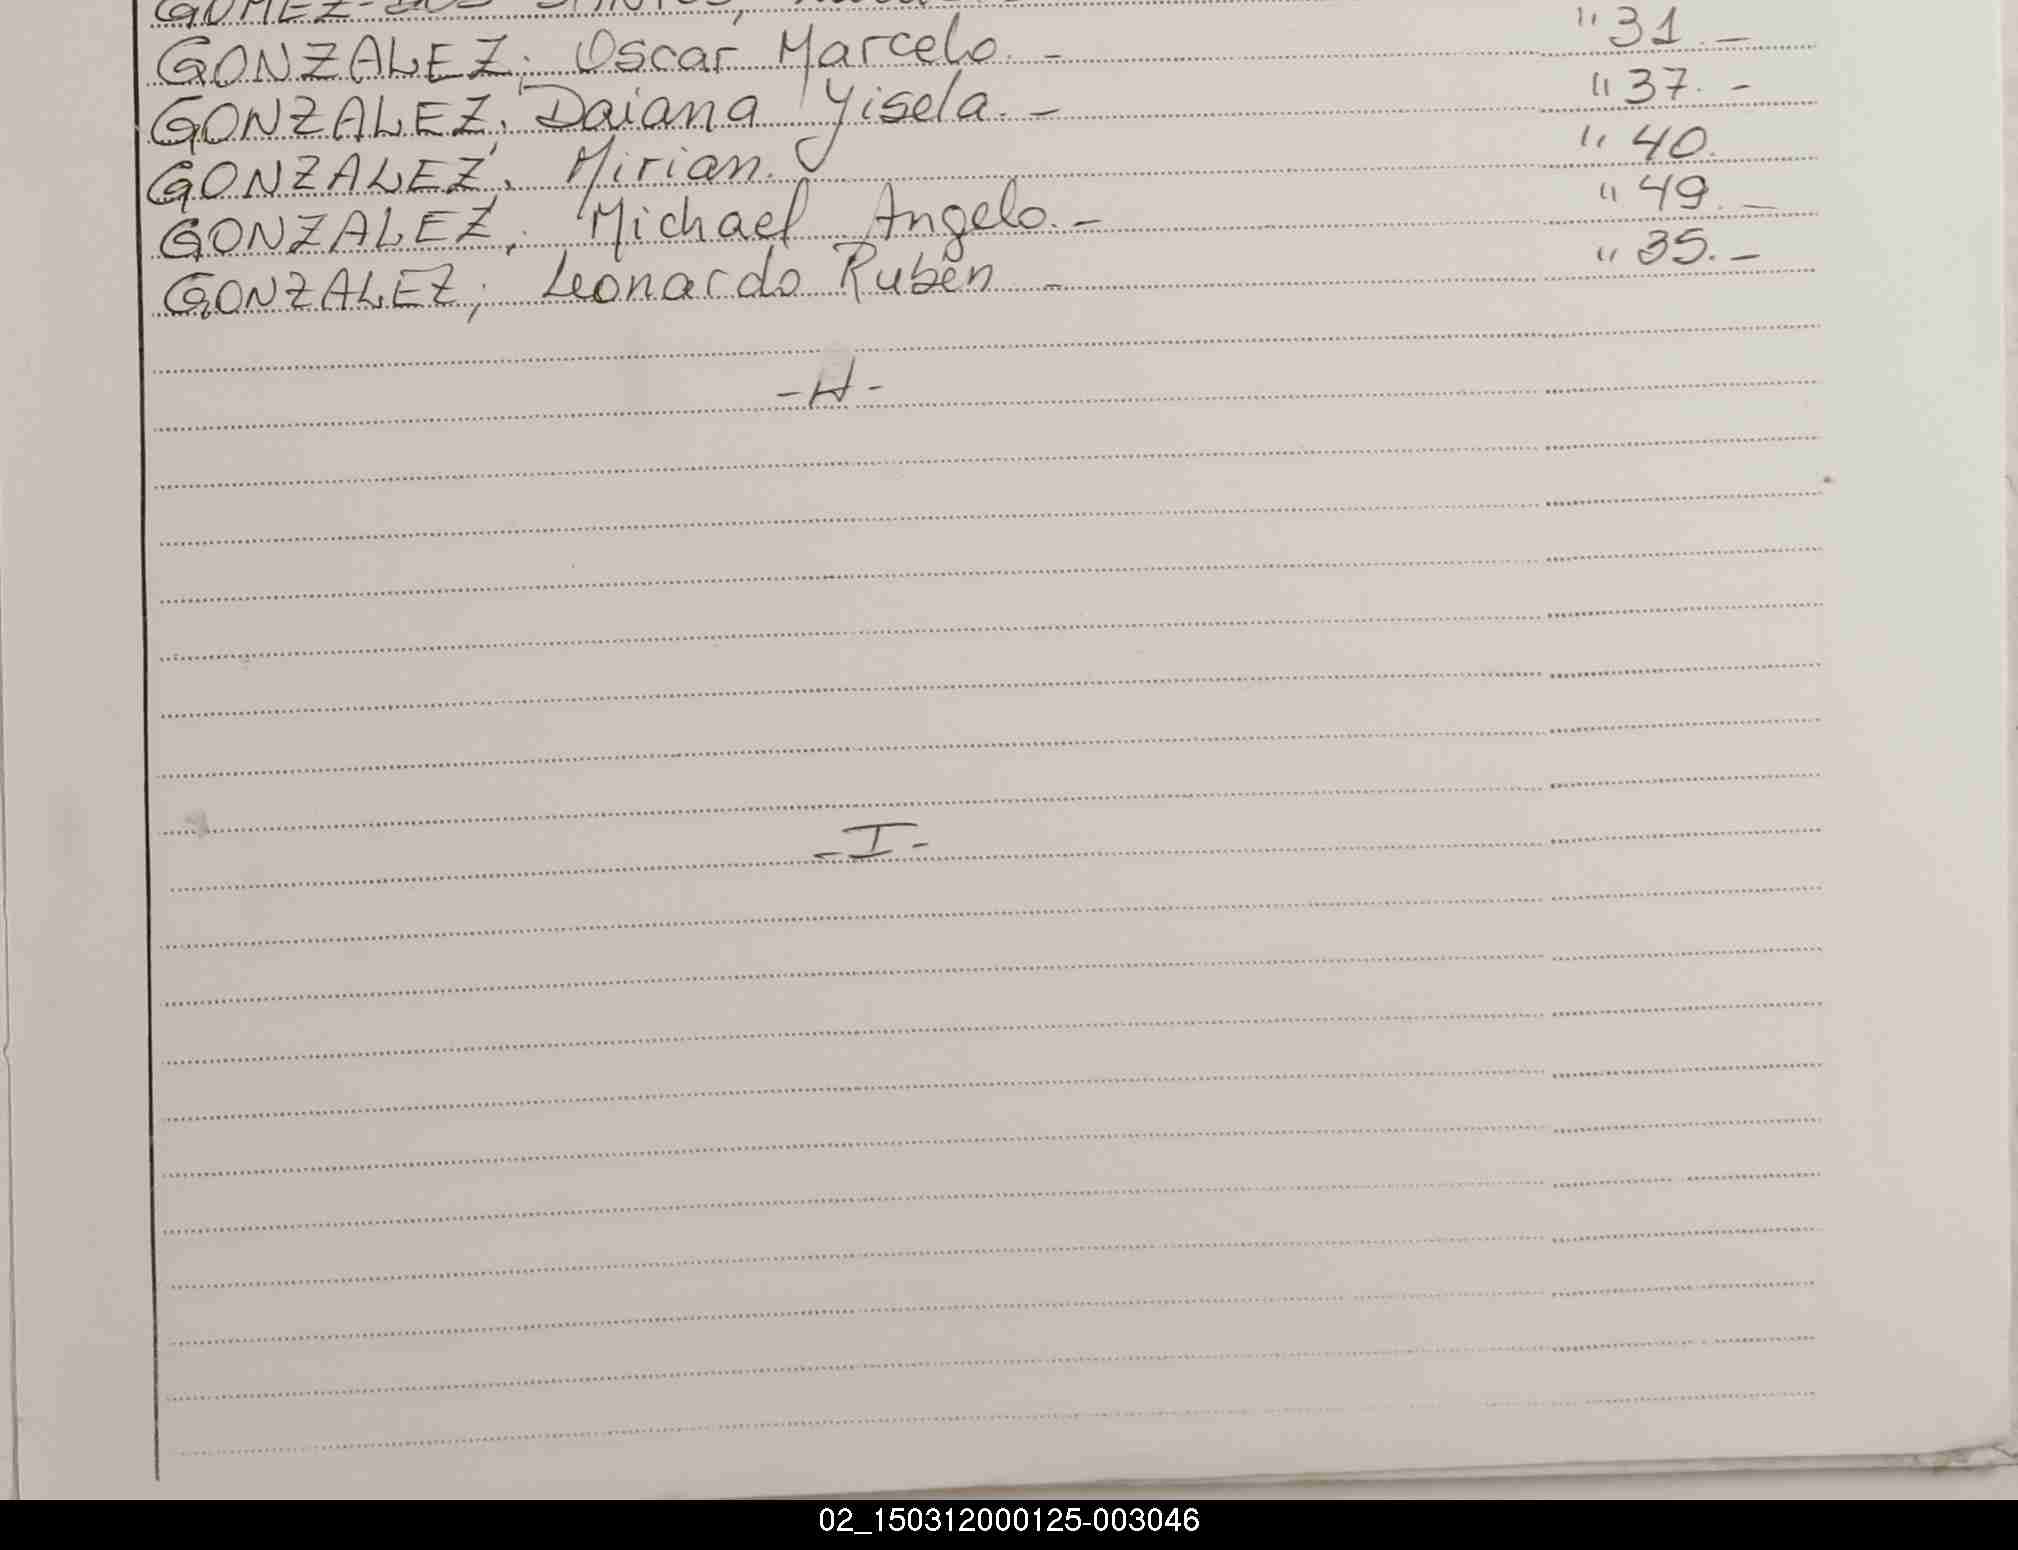 GOMEZ DOS SANTOS,
GONZALEZ; Oscar Marcelo. - " 31. -
GONZALEZ, Daiana Yisela. - " 37. -
GONZALEZ, Mirian. " 40.
GONZALEZ, Michael Angelo. - " 49. -
GONZALEZ; Leonardo Rubén - " 35. -
- H -
- I -
02_150312000125-003046